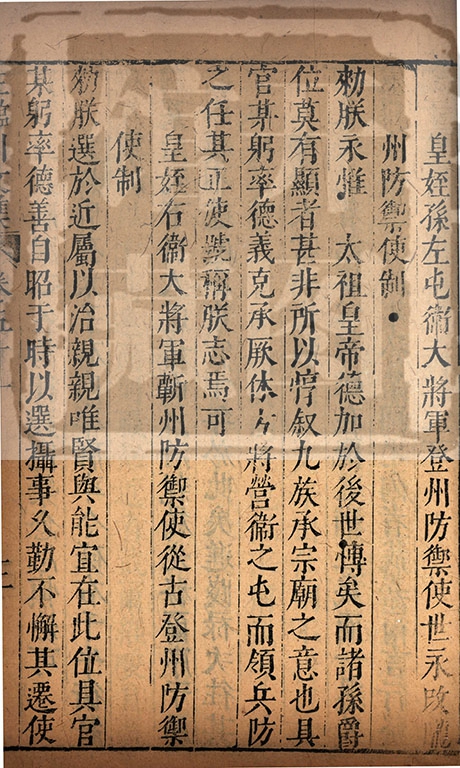 皇姪孫左屯衞大將軍登州防禦使世永改龍
州防禦使制
勑朕永惟　太祖皇帝德加於後世博矣而諸孫爵
位莫有顯者甚非所以惇叙九族承宗廟之意也具
官某躬率德義克承厥休方將營衞之屯而領兵防
之任其正使號稱朕志焉可
皇姪右衞大將軍蘄州防禦使從古登州防禦
使制
勑朕選於近屬以治親親唯賢與能宜在此位具官
某躬率德善自昭于時以選攝事久勤不懈其遷使